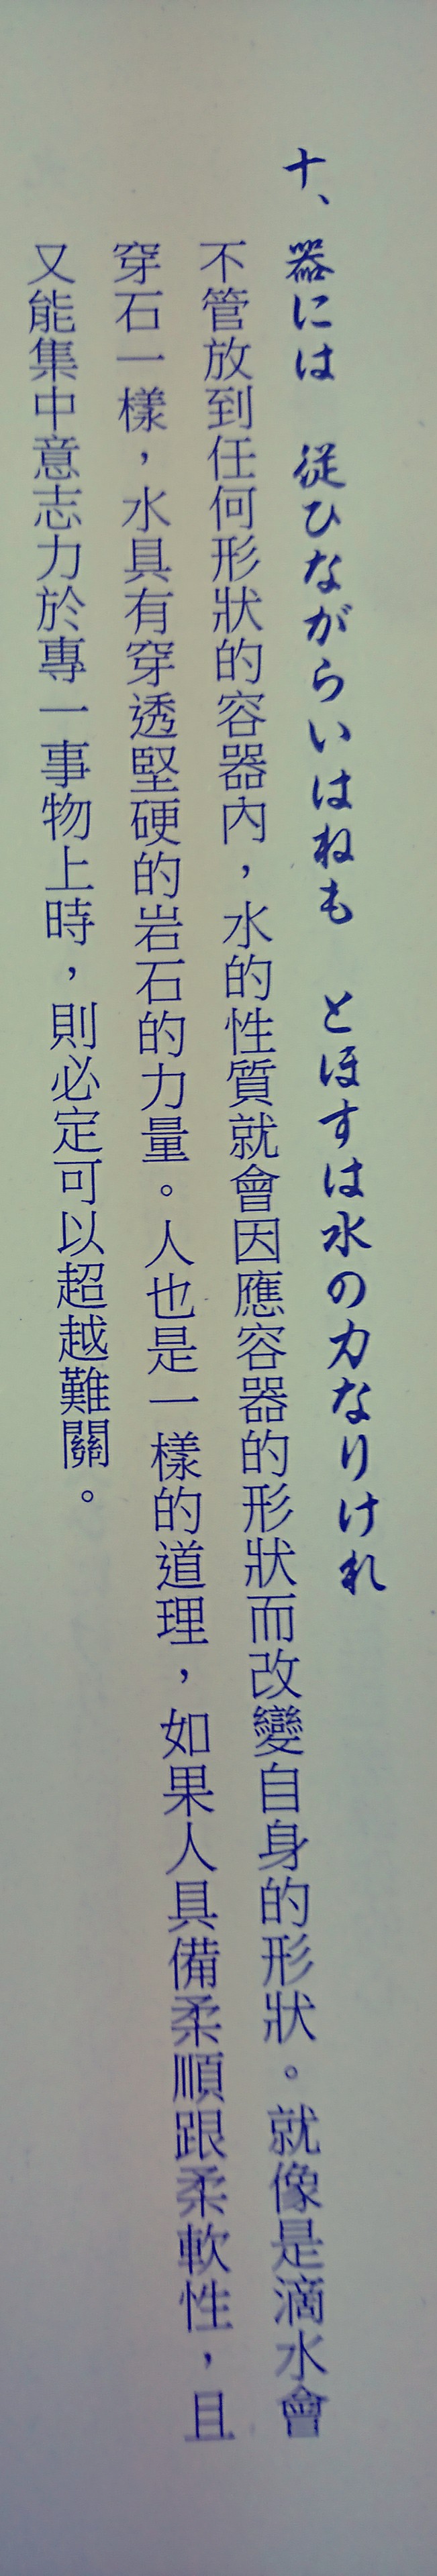 十、器には　従ひながらいはねも　とほすは水の力なりけれ
不管放到任何形狀的容器內，水的性質就會因應容器的形狀而改變自身的形狀。就像是滴水會
穿石一樣，水具有穿透堅硬的岩石的力量。人也是一樣的道理，如果人具備柔順跟柔軟性，且
又能集中意志力於專一事物上時，則必定可以超越難關。